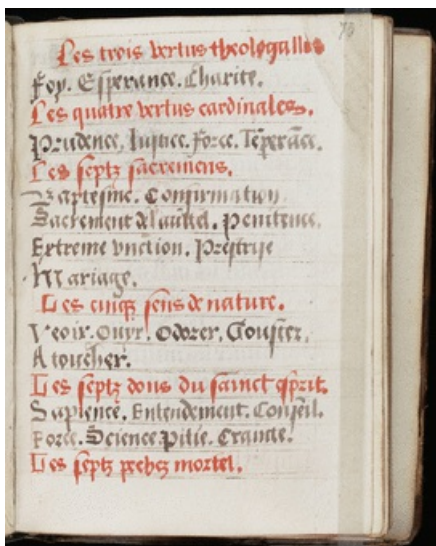 70
Les trois vertus theologalles
Foy. Esperance. Charite.
Les quatre vertus cardinales.
Prudence. Iustice. force. Tēperāce.
Les septz sacremens.
Baptesme. Confirmation
Sacrement de lautel. penitence.
Extreme vnction. Prestrise
Mariage.
Les cinq sens de nature.
Veoir. Ouyr. Odorer. Gouster.
Atoucher.
Les septz dons du sainct esprit.
Sapience. Entendement. Conseil.
Force. Science pitie. Crainte.
Les septz pechez mortel.